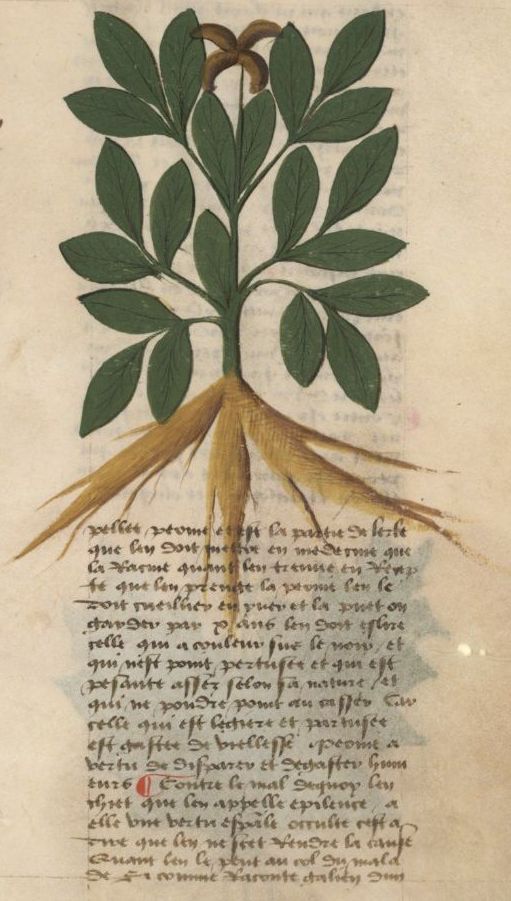 pellee peonie et est la partie de lerbe
que len doit mettre en medecine que
la Racine quant len treuue en Recep
te que len prengne la peonie len le
doit cueillier en yuer et la puet on
garder par x ans len doit eslire
celle qui a couleur sus le noir et
qui nest point pertusee et qui est
pesante assez selon sa nature et
qui ne poudre point au casser Car
celle qui est legiere et partusee
est gastee de viellesse Peonie a
vertu de disparer et degaster humi
eurs ¶ Contre le mal dequoy len
chiet que len appelle epilence a
elle vne vertu espāle occulte cest a
dire que len ne scet Rendre la cause
Quant len le pent au col du mala
de Si comme Raconte galien dun